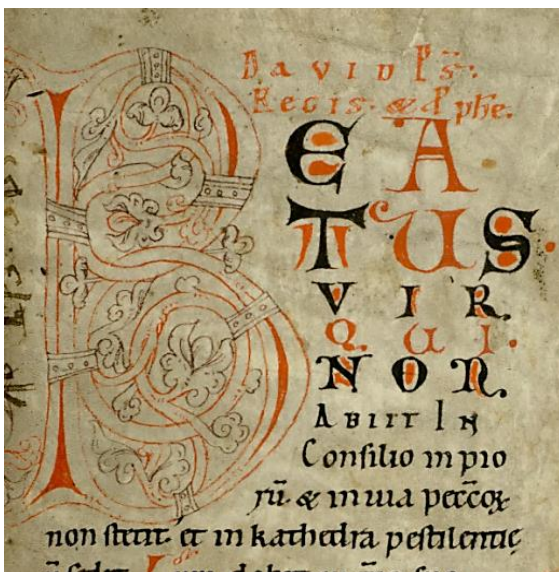 David Ps̄.
Regis. & P phe.
BEA
TUS
VIR
QUI
NON
ABIIT IN
Consilio inpio
rū. & inuia peccꝝ
non stetit et in kathedra pestilentię